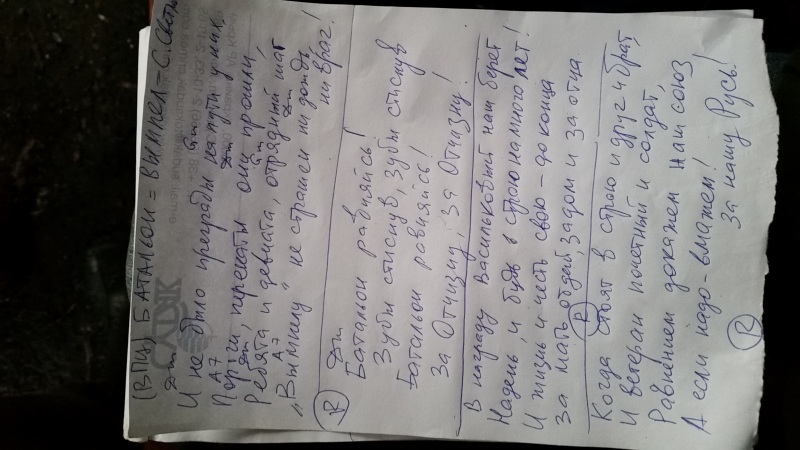 (ВПЦ) БАТАЛЬОН = ВЫМПЕЛ = С.
Dm Gm
И не было преграды на пути у них,
A7 Dm
Пороги, перекаты они прошли,
Dm Gm
Ребята и девчата, отрядный шаг
A7 Dm
„Вымпелу" не страшен ни дождь,
ни враг!
R
Dm
Батальон равняйсь!
Зубы стиснув, Зубы стиснув
Батальон ровняйсь!
За Отчизну, За Отчизну!
В награду Васильковый наш берет
Надень, и будь в строю на много лет!
И жизнь и честь свою - до конца
За мать отдай, за дом и за отца
R
Когда стоят в строю и друг и брат,
И ветеран почетный и солдат,
Равнением докажем наш союз
А если надо - вмажем!
За нашу Русь!
R